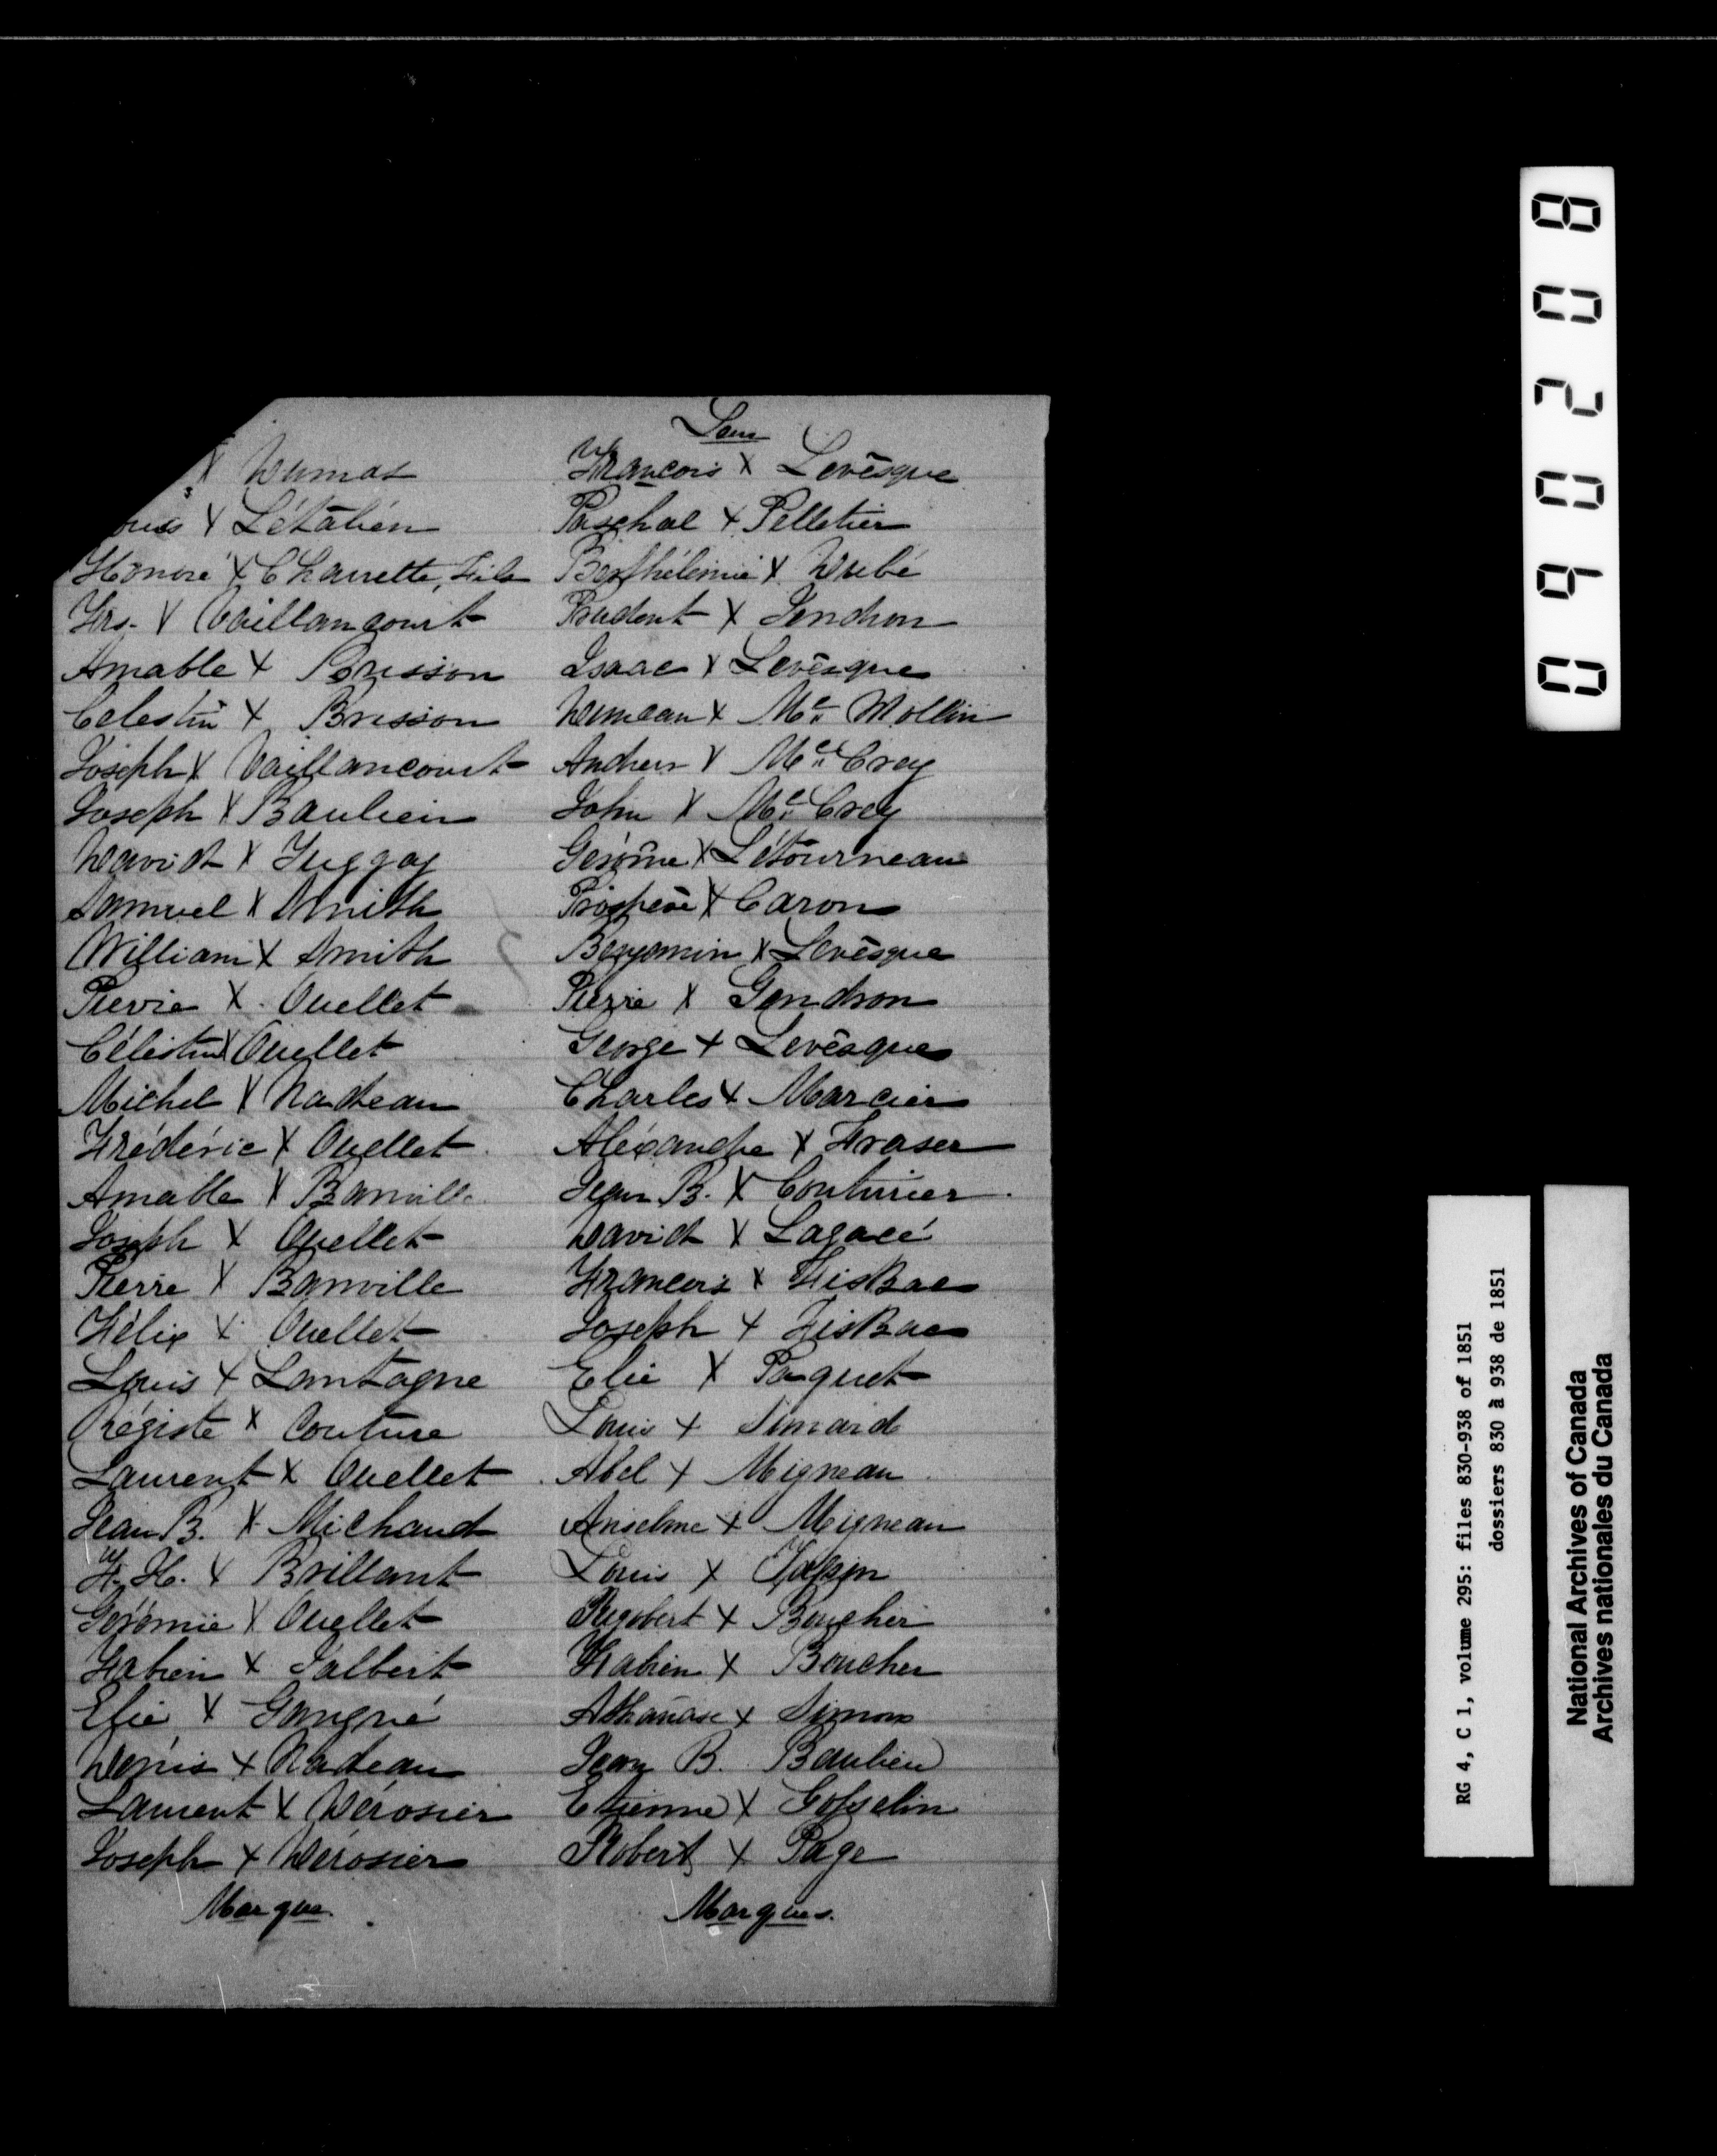 X Dumas
ouis X Létalién
Honoré X Charrette, Fils
Frs. X Vaillancourt
Amable X Brisson
Celestin X Brisson
Joseph X Vaillancourt
Joseph X Baulieu
David X Fuggay
Samuel X Smith
William X Smith
Pierre X Ouellet
Célestin X Ouellet
Michel X Nadeau
Frédéric X Ouellet
Amable X Banville
Joseph X Ouellet
Pierre X Banville
Félix X Ouellet
Louis X Lantagne
Régiste X Couture
Laurent X Ouellet
Jean B. X Michaud
F. H. X Brillant
Gérémie X Ouellet
Fabien X Jalbert
Elie X Gangné
Denis X Nadeau
Laurent X Dérosier
Joseph X Dérosier
Marque.
Leur
Francois X Levêsque
Paschal X Pelletier
Berthélémie X Dubé
Prudent X Jendron
Isaac X Levêsque
Duncan X Mc Mollin
Andrew X Mc Crey
John X Mc Crey
Gérôme X Létourneau
Prospère X Caron
Benjamin X Levêsque
Pierre X Gendron
George X Levêsque
Charles X Marcier
Aléxandre X Fraser
Jean B. X Couturier
David X Lagacé
Francois X FisBac
Joseph X FisBac
Elie X Paquet
Louis X Simard
Abel X Migneau
Anselme X Migneau
Louis X
Rigobert X Boucher
Fabien X Boucher
Athanase X Simon
Jean B. Baulieu
Etienne X Gosselin
Robert X Page
Marques.
090208
RG 4, C 1, volume 295: files 830-938 of 1851
dossiers 830 à 938 de 1851
National Archives of Canada
Archives nationales du Canada